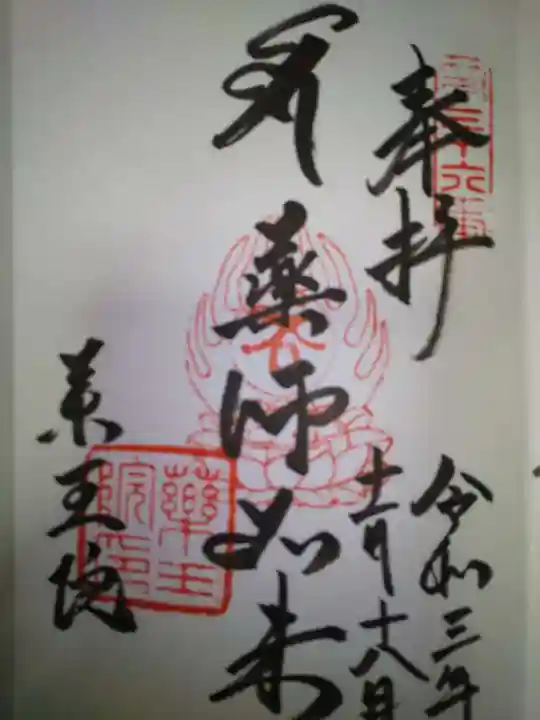 奉拝
令和三年
十一月十八日
薬師如来
薬王院